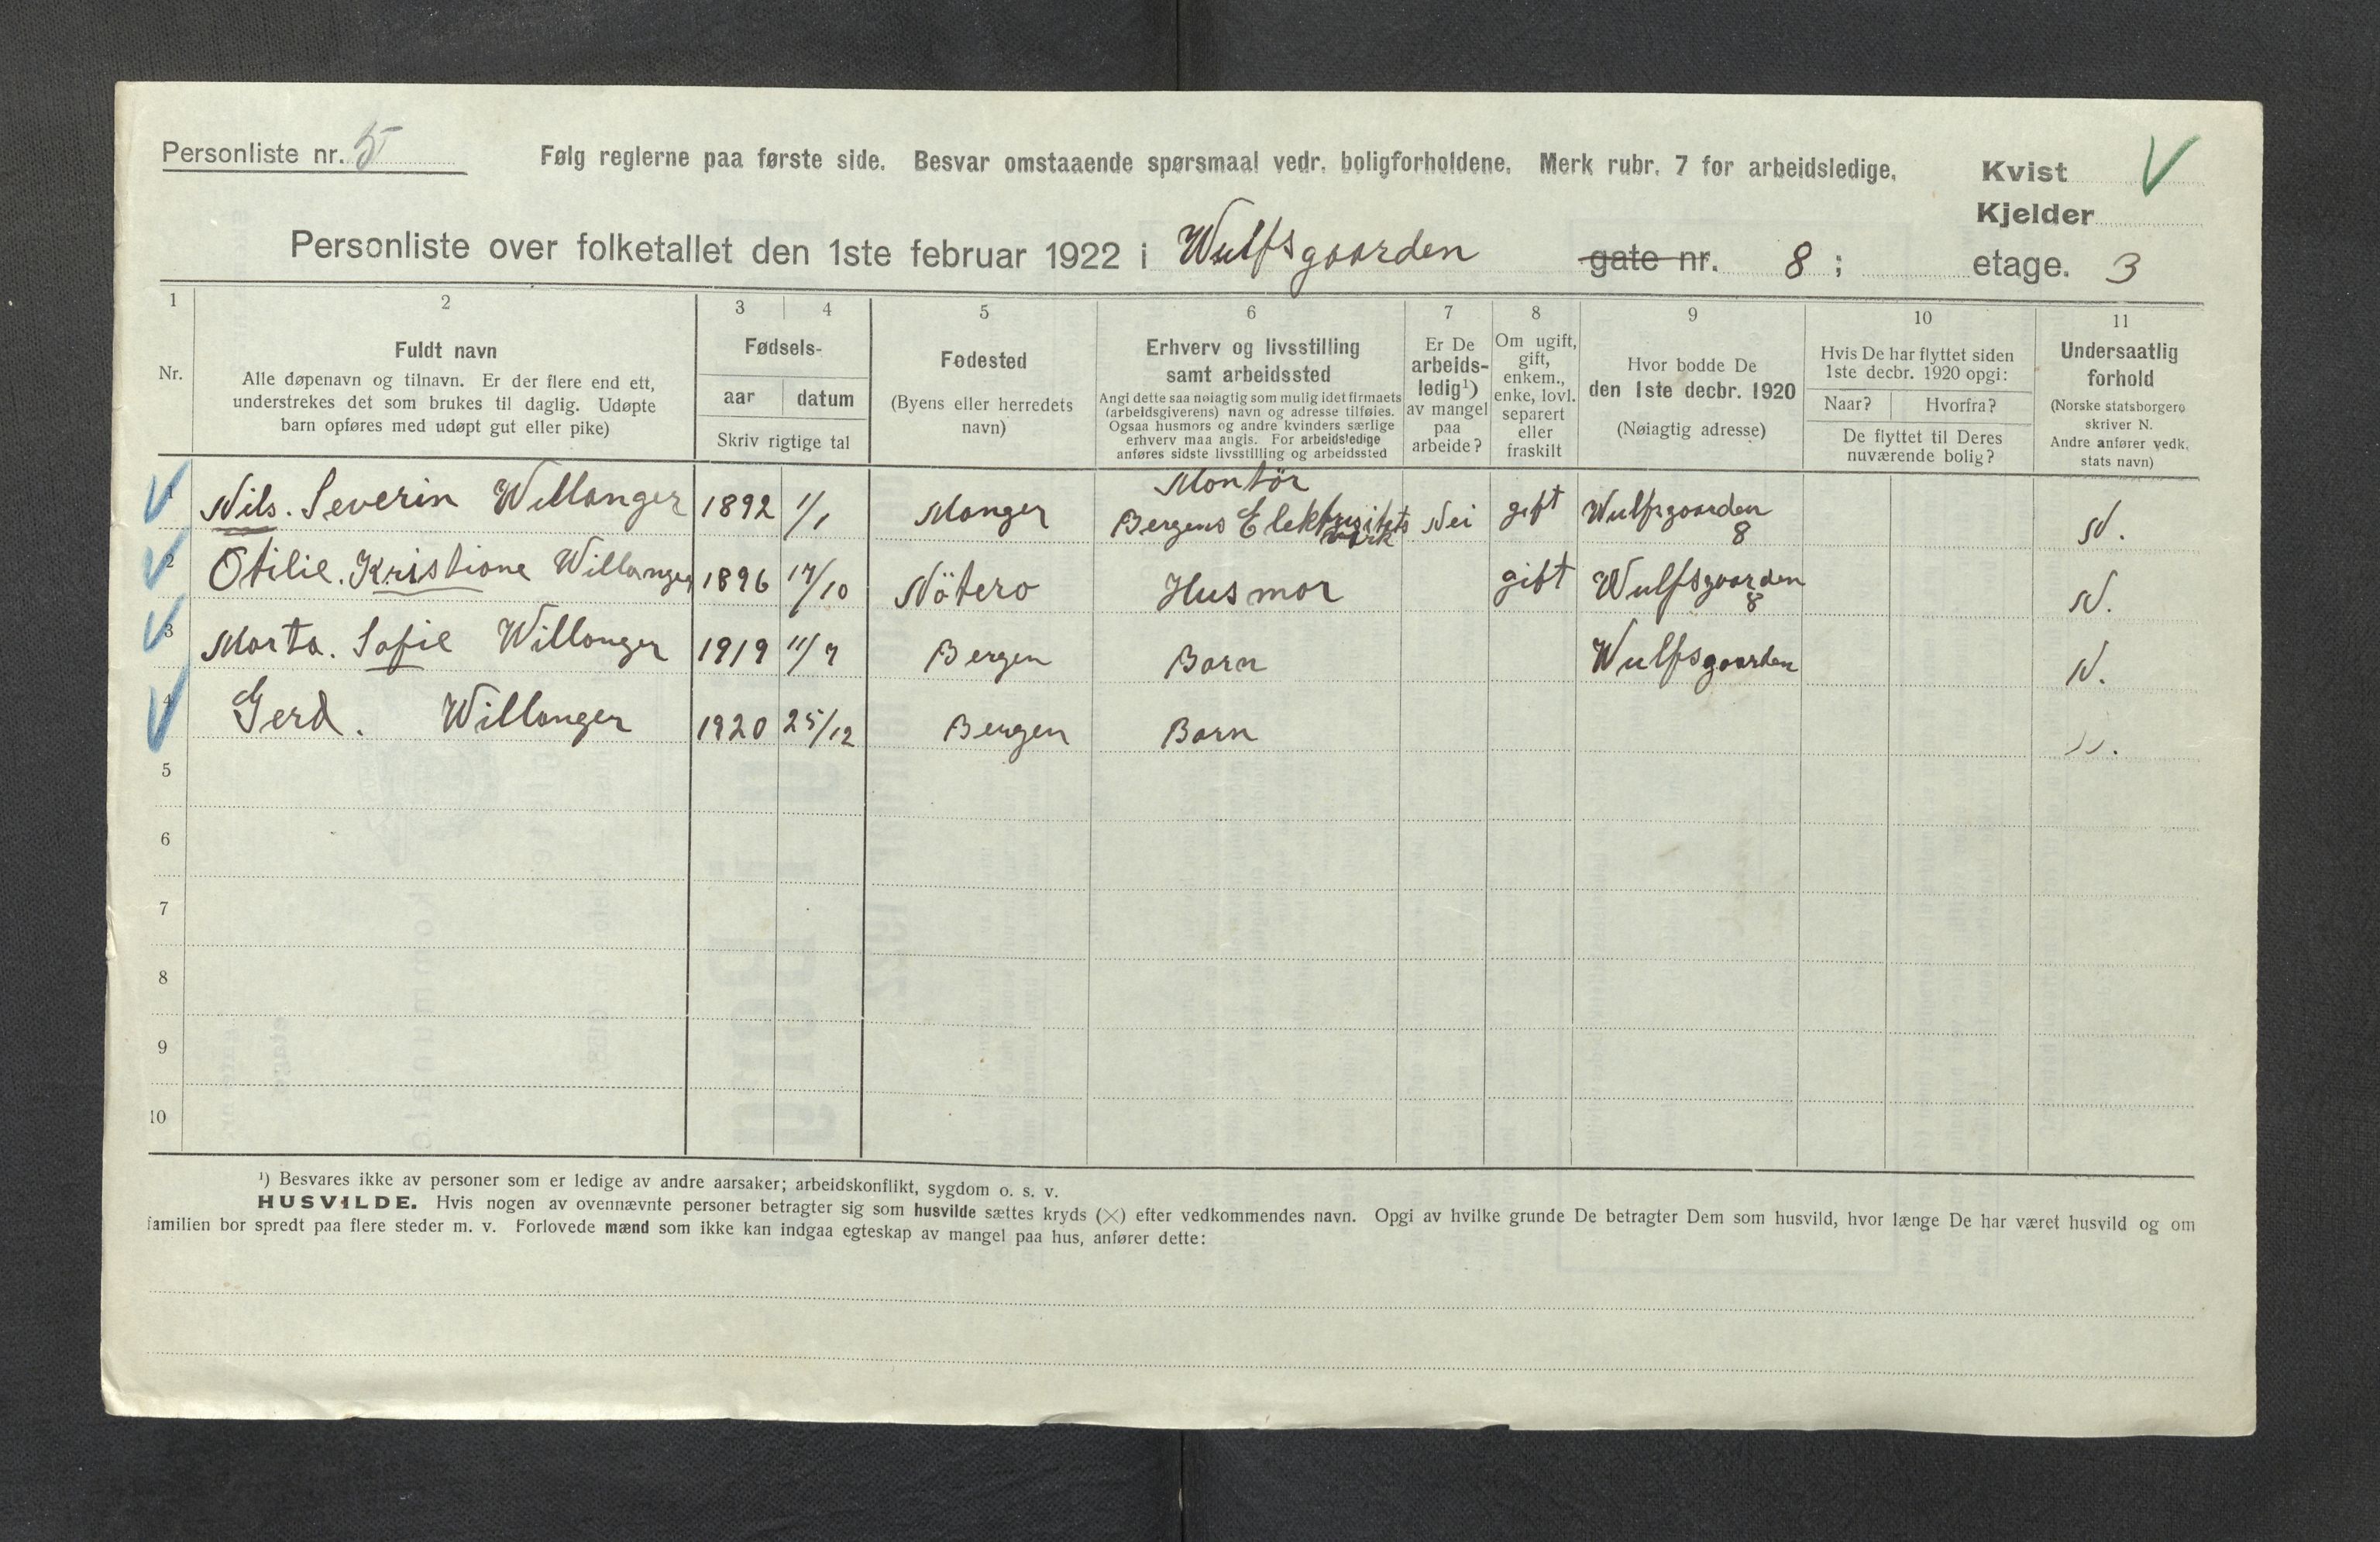 Personliste nr. 5
Følg reglerne paa første side. Besvar omstaaende spørsmaal vedr. boligforholdene. Merk rubr. 7 for arbeidsledige.
Kvist
Kjelder
Personliste over folketallet den 1ste februar 1922 i Wulfsgaarden gate nr. 8 ; etage. 3
1 2 3 4 5 6 7 8 9 10 11
Nr.
Fuldt navn
Alle døpenavn og tilnavn. Er der flere end ett,
understrekes det som brukes til daglig. Udøpte
barn opføres med udøpt gut eller pike)
Fødsels-
aar datum
Skriv rigtige tal
Fødested
(Byens eller herredets
navn)
Erhverv og livsstilling
samt arbeidssted
Angi dette saa nøiagtig som mulig idet firmaets
(arbeidsgiverens) navn og adresse tilføies.
Ogsaa husmors og andre kvinders særlige
erhverv maa angis. For arbeidsledige
anføres sidste livsstilling og arbeidssted
Er De
arbeids-
ledig¹)
av mangel
paa
arbeide?
Om ugift,
gift,
enkem.,
enke, lovl.
separert
eller
fraskilt
Hvor bodde De
den 1ste decbr. 1920
(Nøiagtig adresse)
Hvis De har flyttet siden
1ste decbr. 1920 opgi:
Naar? Hvorfra?
De flyttet til Deres
nuværende bolig?
Undersaatlig
forhold
(Norske statsborgere
skriver N.
Andre anfører vedk.
stats navn)
Montör
1 Nils. Severin Willanger 1892 1/1 Manger Bergens Elektrisitets Nei gift Wulfsgaarden N.
verk 8
2 Otilie. Kristiane Willanger 1896 17/10 Nötero Husmor gift Wulfsgaarden N.
8
3 Marta. Sofie Willanger 1919 11/7 Bergen Barn Wulfsgaarden N.
4 Gerd. Willanger 1920 25/12 Bergen Barn N.
5
6
7
8
9
10
¹) Besvares ikke av personer som er ledige av andre aarsaker; arbeidskonflikt, sygdom o. s. v.
HUSVILDE. Hvis nogen av ovennævnte personer betragter sig som husvilde sættes kryds (×) efter vedkommendes navn. Opgi av hvilke grunde De betragter Dem som husvild, hvor længe De har været husvild og om
familien bor spredt paa flere steder m. v. Forlovede mænd som ikke kan indgaa egteskap av mangel paa hus, anfører dette: